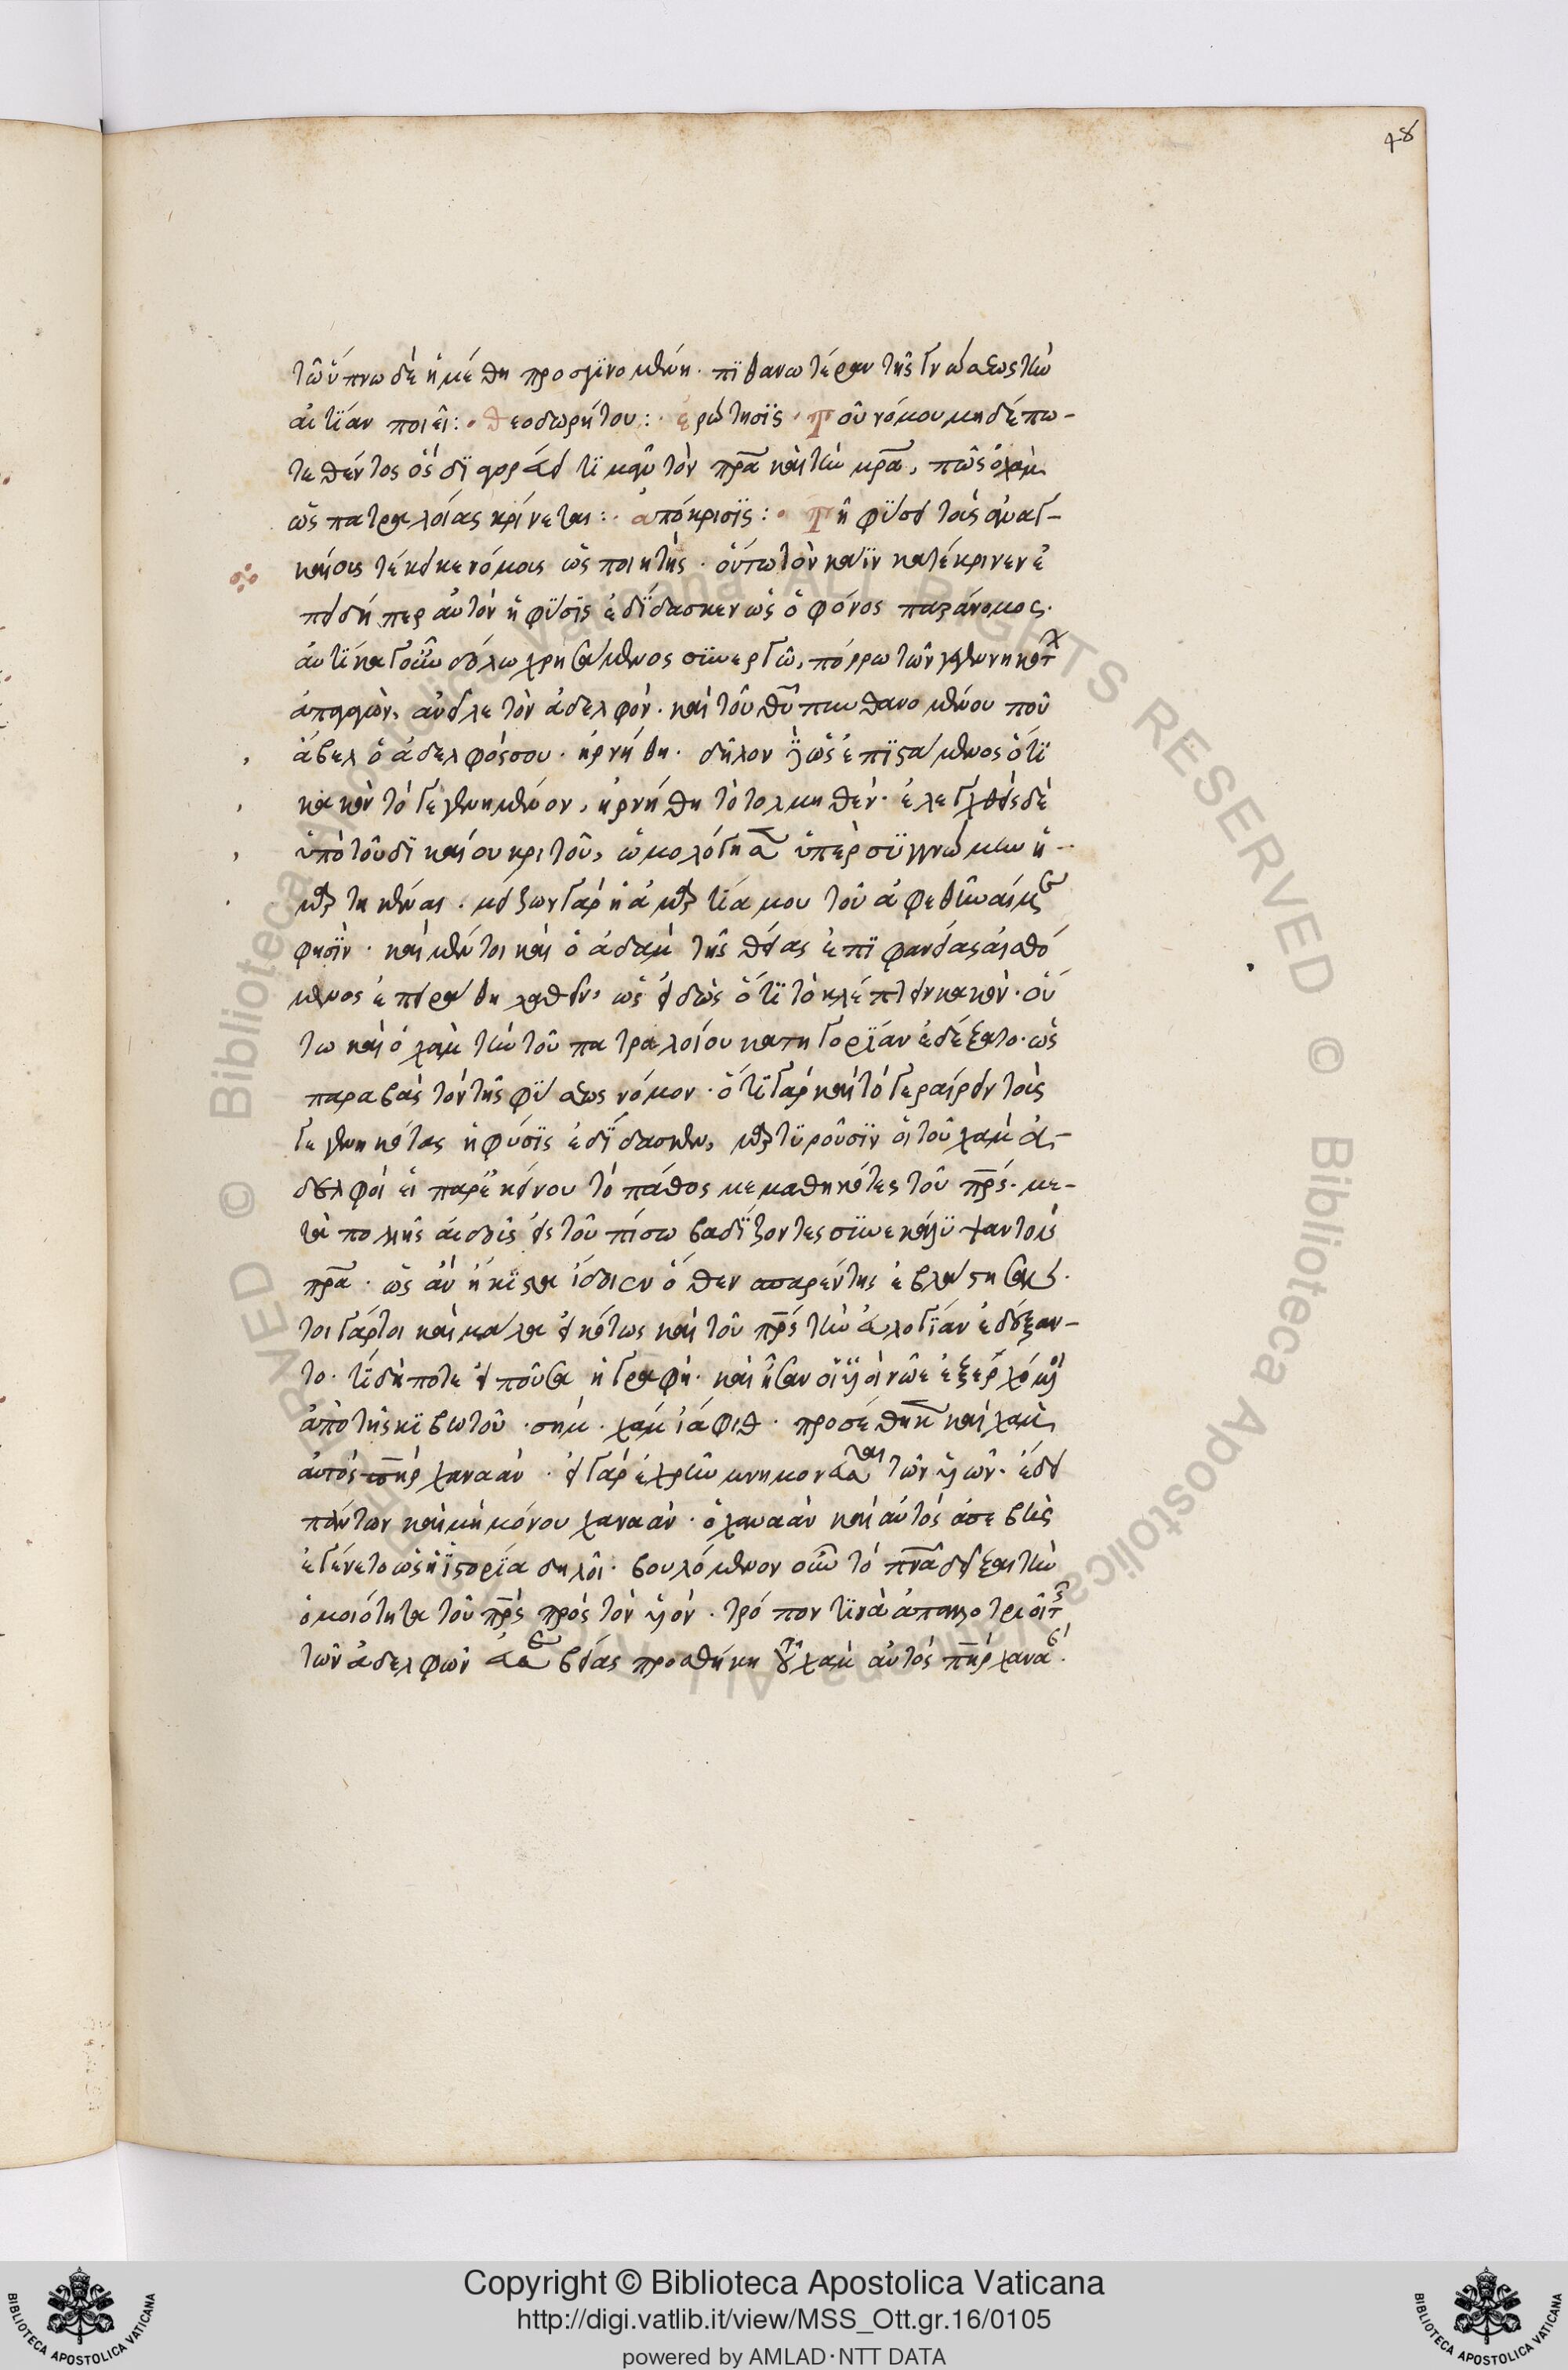 48
τῶ ὕπνω δὲ ἡ μέθη προσγινομένη· πιθανωτέραν τῆς γνώσεως τὴν
αἰτίαν ποιεῖ: Θεοδωρήτου: ἐρώτησις· Τοῦ νόμου μηδέπω
τεθέντος ὃς διαγορεύει τιμᾶν τὸν πρα καὶ τὴν μρα, πῶς ὁ χὰμ
ὡς πατραλοίας κρίνεται: ἀπόκρισις: Τῆ φύσει τοὺς ἀναγ-
καίους τέθεικε νόμους ὡς ποιητής· οὕτω τὸν κάϊν κατέκρινεν ἐ
πειδήπερ αὐτὸν ἡ φύσις ἐδίδασκεν ὡς ὁ φόνος παράνομος·
αὐτίκα γοῦν δόλω χρησάμενος συνεργῶ, πόρρω τῶν γεγεννηκότ
ἀπαγαγὼν, ἀνεῖλε τὸν ἀδελφόν· καὶ τοῦ θυ πυνθανομένου ποῦ
ἄβελ ὁ ἀδελφός σου· ἠρνήθη· δῆλον ὡς ἐπιστάμενος ὅτι
κακὸν τὸ γεγενημένον, ἠρνήθη τὸ τολμηθέν· ἐλεγχθεὶς δὲ
ὑπὸ τοῦ δικαίου κριτοῦ, ὡμολόγησεν ὑπὲρ συγγνώμην ἡ-
μαρτηκέναι· μείζων γὰρ ἡ ἁμαρτία μου τοῦ ἀφεθῆναί με
φησίν· καὶ μέντοι καὶ ὁ ἀδὰμ τῆς θείας ἐπιφανείας αἰσθό
μενος ἐπειράθη λαθεῖν, ὡς εἰδὼς ὅτι τὸ κλέπτειν κακόν· οὕ
τω καὶ ὁ χὰμ τὴν τοῦ πατραλοίου κατηγορίαν ἐδέξατο· ὡς
παραβὰς τὸν τῆς φύσεως νόμον· ὅτι γὰρ καὶ τὸ γεραίρειν τοὺς
γεγεννηκότας ἡ φύσις ἐδίδασκεν, μαρτυροῦσιν οἱ τοῦ χὰμ ἀ-
δελφοὶ οἳ παρ' ἐκείνου τὸ πάθος μεμαθηκότες τοῦ πρς· με-
τὰ πολλῆς αἰδοῦς εἰς τοῦ πίσω βαδίζοντες συνεκάλυψαν τὸν
πρα· ὡς ἂν ἥκιστα ἴδοιεν ὅθεν σπαρέντες ἐβλάστησαν·
τοιγάρτοι καὶ μάλα εἰκότως καὶ τοῦ πρς τὴν εὐλογίαν ἐδέξαν-
το· τί δήποτε εἰποῦσα ἡ γραφή· καὶ ἦσαν οἱ υἱοὶ νῶε ἐξερχόμενοι
ἀπὸ τῆς κιβωτοῦ· σήμ· χάμ ἰάφεθ· προσέθηκε καὶ χὰμ
αὐτὸς πηρ χαναάν· εἰ γὰρ ἐχρῆν μνημονεῦσαι τῶν υἱῶν· ἔδει
πάντων καὶ μὴ μόνου χαναάν· ὁ χαναὰν καὶ αὐτὸς ἀσεβὴς
ἐγένετο ὡς ἡ ἱστορία δηλοῖ· βουλόμενον οὖν τὸ πνα δεῖξαι τὴν
ὁμοιότητα τοῦ πρς πρὸς τὸν υἱόν· τρόπον τινὰ ἀπαλλοτριοῖ τῆς
τῶν ἀδελφῶν εὐσεβείας προσθήκη τοῦ χὰμ αὐτὸς πηρ χαναάν·
Copyright © Biblioteca Apostolica Vaticana
http://digi.vatlib.it/view/MSS_Ott.gr.16/0105
powered by AMLAD·NTT DATA